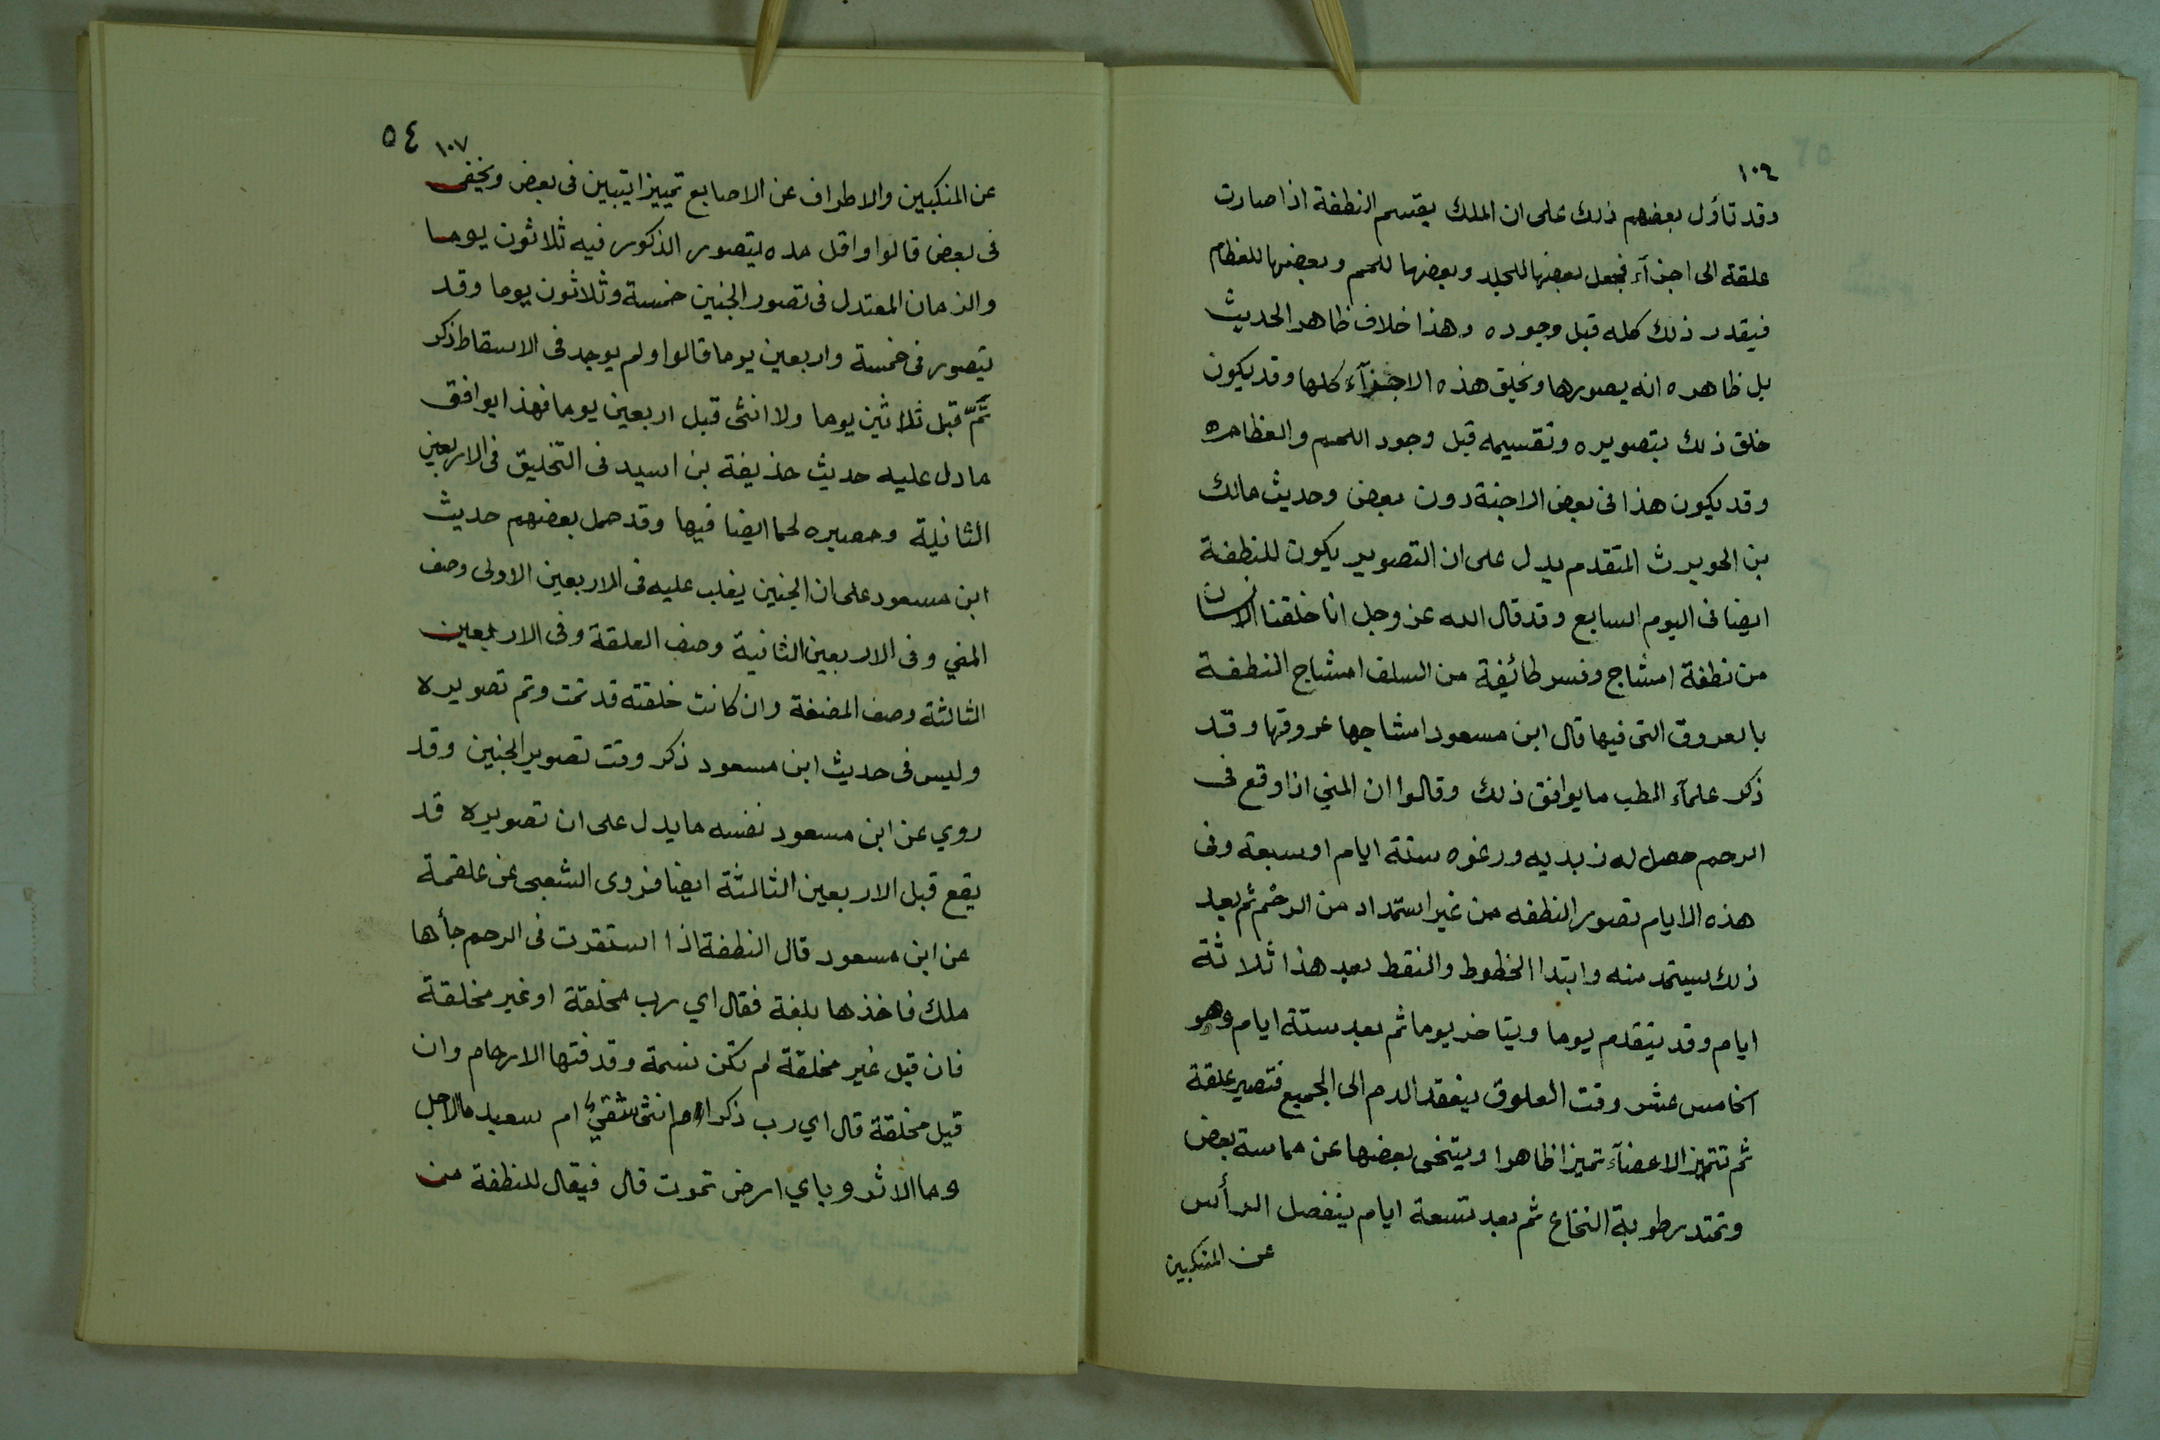 ١٠٦
وقد تأول بعضهم ذلك على ان الملك يقسم النطفة اذا صارت
علقة الى اجزآء فيجعل بعضها للجلد وبعضها للحم وبعضها للعظام
فيقدر ذلك كله قبل وجوده وهذا خلاف ظاهر الحديث
بل ظاهره انه يصورها ويخلق هذه الاجزآء كلها وقد يكون
خلق ذلك بتصويره وتقسيمه قبل وجود اللحم والعظام
وقد يكون هذا في بعض الاجنة دون بعض وحديث مالك
بن الحويرث المتقدم يدل على ان التصوير يكون للنطفة
ايضا في اليوم السابع وقد قال الله عز وجل انا خلقنا الانسان
من نطفة امشاج وفسر طائفة من السلف امشاج النطفة
بالعروق التي فيها قال ابن مسعود امشاجها عروقها وقد
ذكر علمآء الطب ما يوافق ذلك وقالوا ان المني اذا وقع في
الرحم حصل له زبديه ورغوه ستة ايام او سبعة وفي
هذه الايام تصور النطفه من غير استمداد من الرحم ثم بعد
ذلك يستمد منه وابتدا الخطوط والنقط بعد هذا ثلاثة
ايام وقد يتقدم يوما ويتاخر يوما ثم بعد ستة ايام وهو
الخامس عشر وقت العلوق ينفقد الدم الى الجميع فتصير علقة
ثم تتميز الاعضآء تميزا ظاهرا ويتنحى بعضها عن مماسة بعض
وتمتد رطوبة النخاع ثم بعد تسعة ايام ينفصل الرأس
عن المنكبين
١٠٧ ٥٤
عن المنكبين والاطراف عن الاصابع تمييزا يتبين في بعض ويخفى
في بعض قالوا واقل مده يتصور الذكور فيه ثلاثون يوما
والزمان المعتدل في تصور الجنين خمسة وثلاثون يوما وقد
يتصور في خمسة واربعين يوما قالوا ولم يوجد في الاسقاط ذكر
تَمَّ قبل ثلاثين يوما ولا انثى قبل اربعين يوما فهذا يوافق
ما دل عليه حديث حذيفة بن اسيد في التخليق في الاربعين
الثانية ومصيره لحما ايضا فيها وقد حمل بعضهم حديث
ابن مسعود على ان الجنين يغلب عليه في الاربعين الاولى وصف
المني وفي الاربعين الثانية وصف العلقة وفي الاربعين
الثالثة وصف المضغة وان كانت خلقته قد تمت وتم تصويره
وليس في حديث ابن مسعود ذكر وقت تصوير الجنين وقد
روي عن ابن مسعود نفسه ما يدل على ان تصويره قد
يقع قبل الاربعين الثالثة ايضا فروى الشعبي عن علقمة
عن ابن مسعود قال النطفة اذا استقرت في الرحم جأها
ملك فاخذها بلغة فقال اي رب مخلقة او غير مخلقة
فان قيل غير مخلقة لم تكن نسمة وقدفتها الارحام وان
قيل مخلقة قال اي رب ذكرا ام انثى شقي ام سعيد ما الاجل
وما الاثر وباي ارض تموت قال فيقال للنطفة من